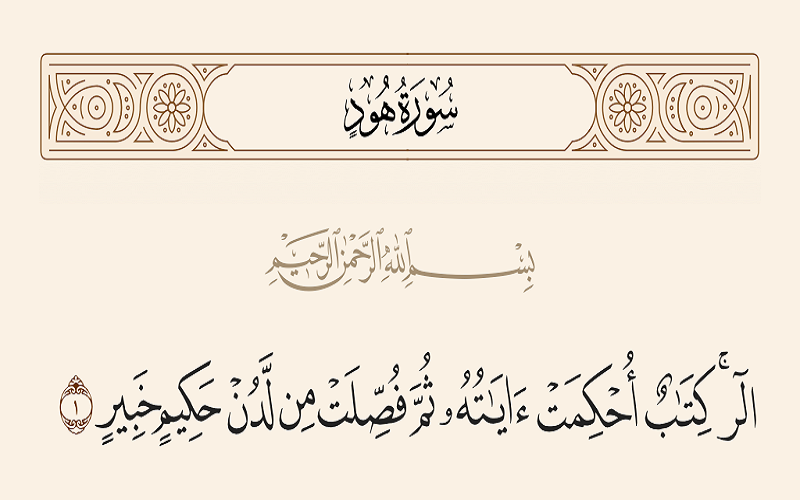 سُورَةُ هُودٍ
بِسْمِ ٱللَّهِ ٱلرَّحْمَٰنِ ٱلرَّحِيمِ
الٓرۚ كِتَٰبٌ أُحْكِمَتْ ءَايَٰتُهُۥ ثُمَّ فُصِّلَتْ مِن لَّدُنْ حَكِيمٍ خَبِيرٍ ١